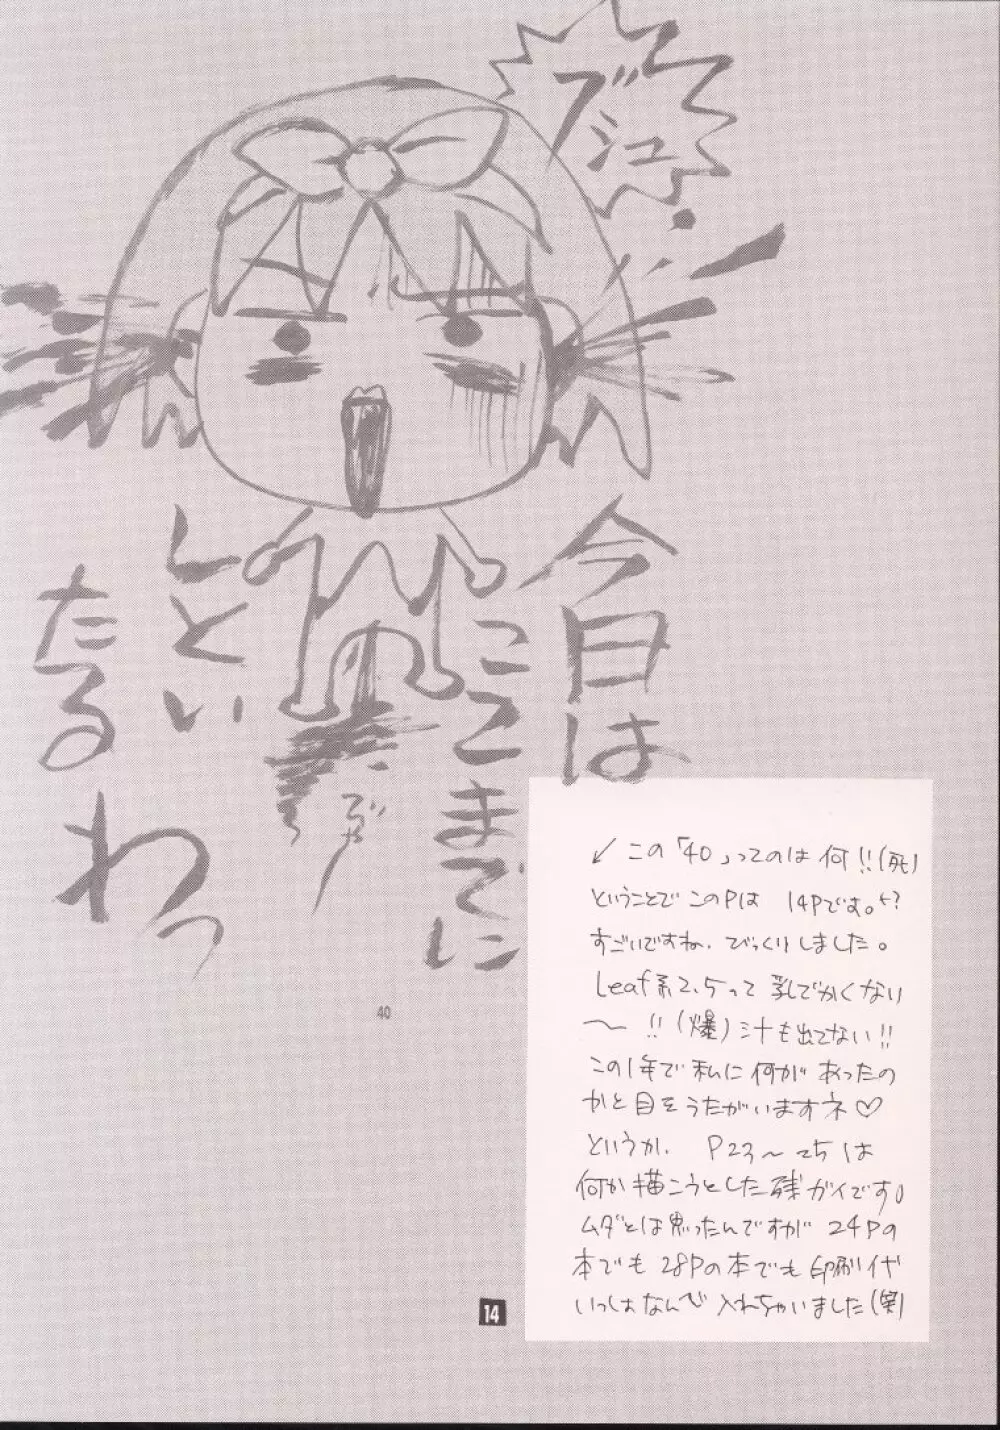 ブシュッ
今日は
ここまでに
しとい
たるわっ
40
↙この「40」ってのは何!!(死)
ということでこのPは 14Pです。
すごいですね、びっくりしました。
Leaf系2.5って乳でかくない
〜!!(爆)汁も出てない!!
この1年で私に何があったの
かと目をうたがいますネ♡
というか、P23〜25は
何か描こうとした残ガイです。
ムダとは思ったんですが24Pの
本でも28Pの本でも印刷代
いっしょなんで入れちゃいました(笑)
14